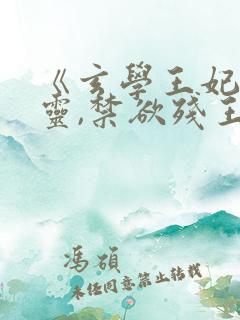 《玄學王妃
靈,禁欲殘王
馮碩
未经同意禁止转载